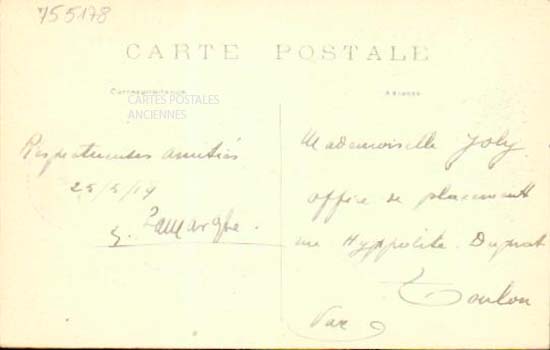 755178
CARTE POSTALE
Correspondance
Adresse
CARTES POSTALES
ANCIENNES
Respectueuses amitiés
Mademoiselle Joly
office de placement
rue Hyppolite Duprat
Toulon
Var